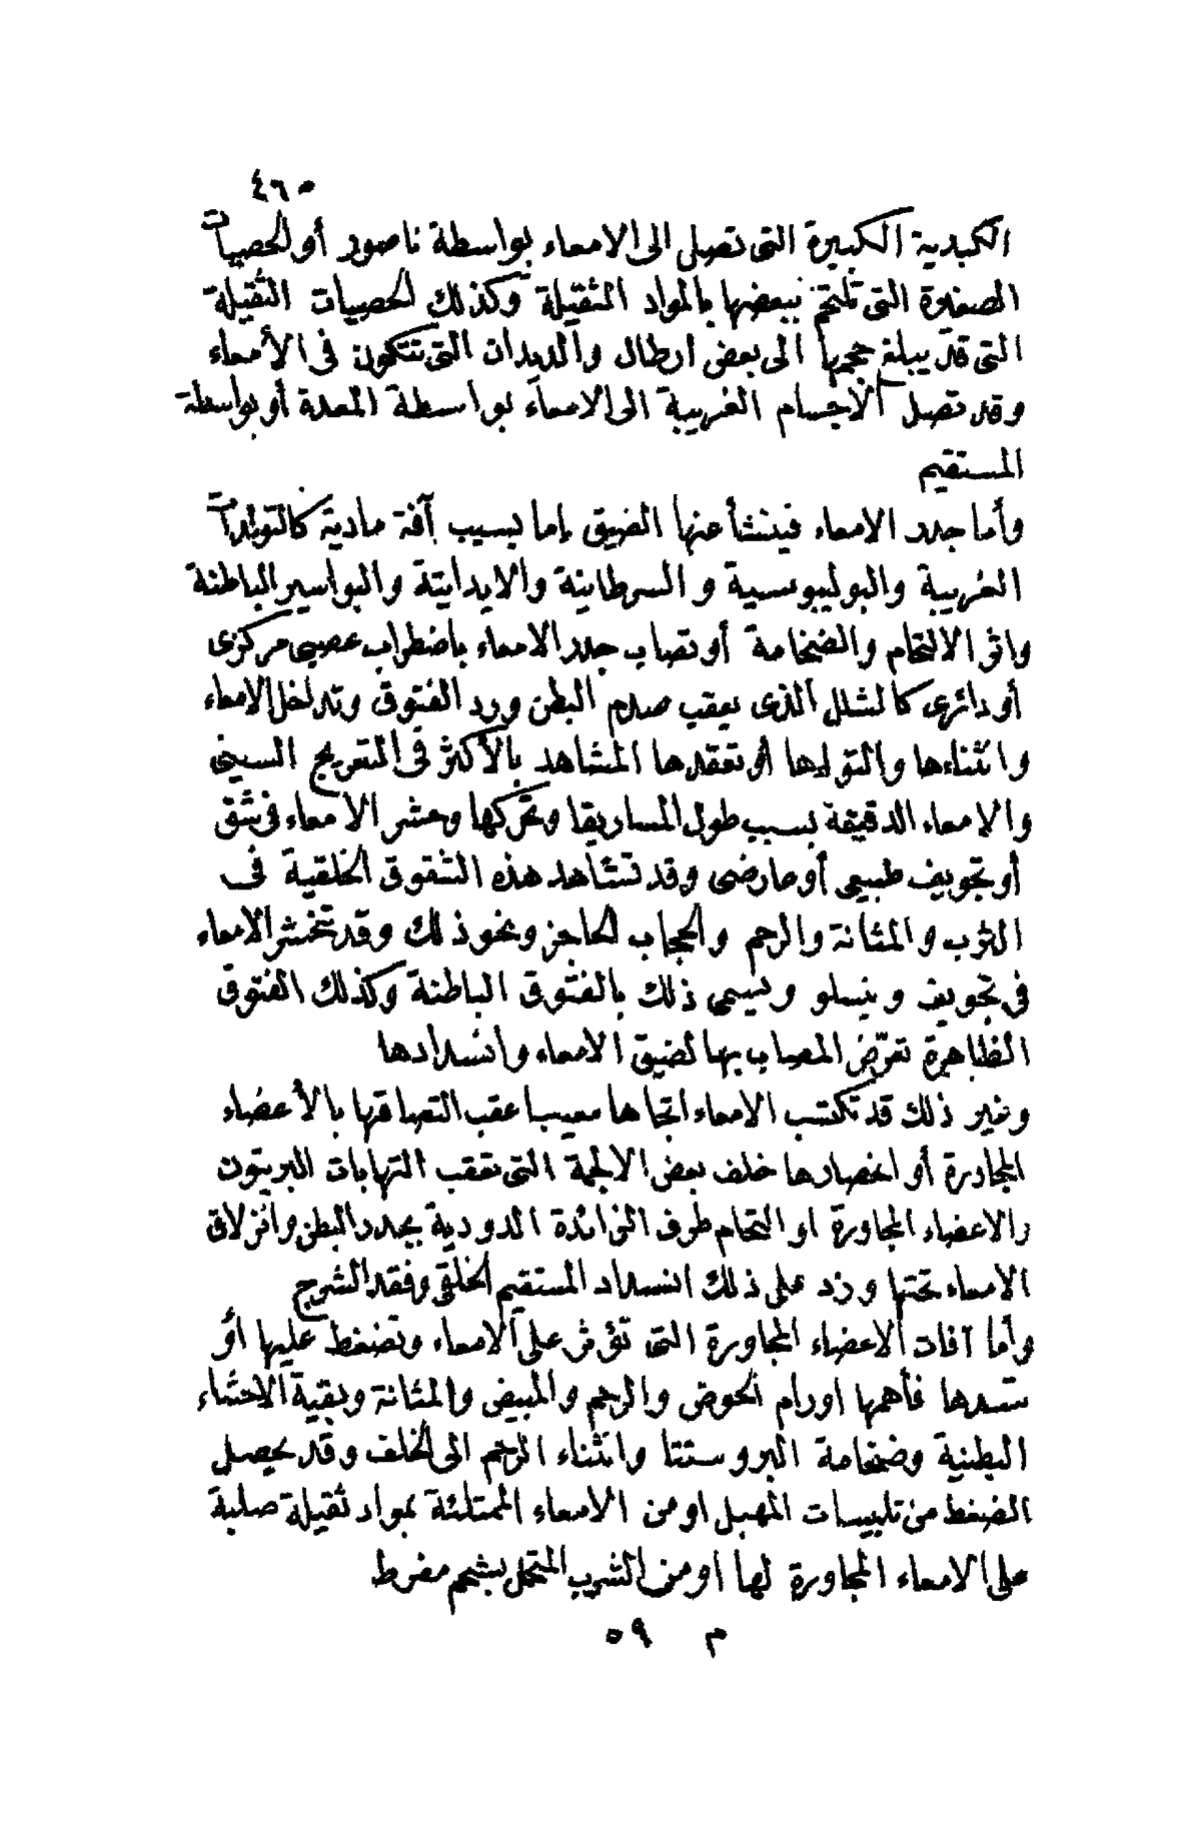 ٤٦٥
الكبدية الكبيرة التى تصل الى الامعاء بواسطة ناصور أو الحصيات
الصغيرة التى تلتحم ببعضها بالمواد الثفيلة وكذلك الحصيات الثفيلة
التى قد يبلغ حجمها الى بعض ارطال والديدان التى تتكون فى الأمعاء
وقد تصل الاجسام الغريبة الى الامعاء بواسطة المعدة أو بواسطة
المستقيم
وأما جدر الامعاء فينشأ عنها الضيق إما بسبب آفة مادية كالتولدات
الغريبة والبوليبوسية والسرطانية والايدايتة والبواسير الباطنة
واثر الالتحام والضخامة أو تصاب جدر الامعاء باضطراب عصبى مركزى
أو دائرى كالشلل الذى يعقب صدم البطن ورد الفتوق وتداخل الامعاء
وانثناءها والتواءها أو تعقدها المشاهد بالأكثر فى التعريج السينى
والامعاء الدقيقة بسبب طول المساريقا وتحركها وحشر الامعاء فى شق
أو تجويف طبيعى أو عارضى وقد تشاهد هذه الشقوق الخلقية فى
الثرب والمثانة والرحم والحجاب الحاجز ونحو ذلك وقد تنحشر الامعاء
فى تجويف وينسلو ويسمى ذلك بالفتوق الباطنة وكذلك الفتوق
الظاهرة تعرّض المصاب بها لضيق الامعاء وانسدادها
وغير ذلك قد تكتسب الامعاء اتجاها معيبا عقب التصاقها بالأعضاء
المجاورة أو انحصارها خلف بعض الالجمة التى تعقب التهابات البريتون
والاعضاء المجاورة او التحام طرف الزائدة الدودية بجدر البطن وانزلاق
الامعاء تحتها وزد على ذلك انسداد المستقيم الخلقى وفقد الشرج
وأما آفات الاعضاء المجاورة التى تؤثر على الامعاء وتضغط عليها أو
تسدها فأهمها اورام الحوض والرحم والمبيض والمثانة وبقية الاحشاء
البطنية وضخامة البروستتا وانثناء الرحم الى الخلف وقد يحصل
الضغط من تلبيسات المهبل او من الامعاء الممتلئة بمواد ثفيلة صلبة
على الامعاء المجاورة لها او من الثرب المتحمل بشحم مفرط
م ٥٩